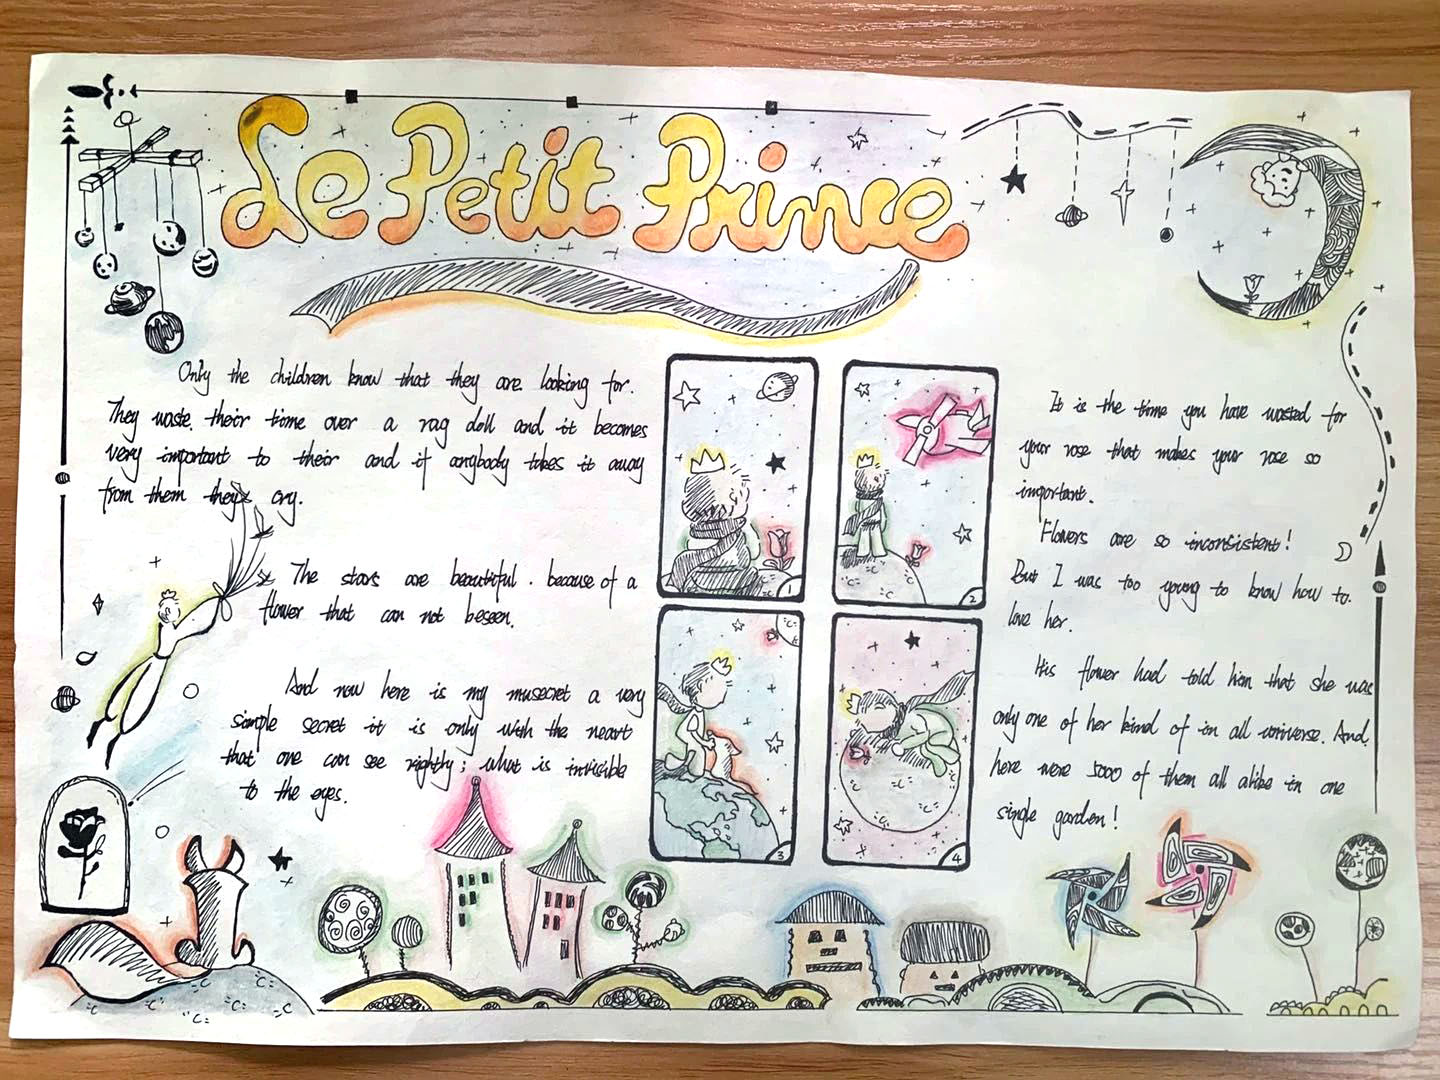 Le Petit Prince
Only the children know that they are looking for.
They waste their time over a rag doll and it becomes
very important to their and if angbody takes it away
from them they's cry.
The stars are beautiful . because of a
flower that can not beseen.
And now here is my musecret a very
simple secret it is only with the heart
that one can see rightly ; what is invisible
to the eyes.
1
2
3
4
It is the time you have wasted for
your rose that makes your rose so
important.
Flowers are so inconsistent!
But I was too young to know how to.
love her.
His flower had told him that she was
only one of her kind of in all universe. And.
here were 5000 of them all alike in one
single garden!